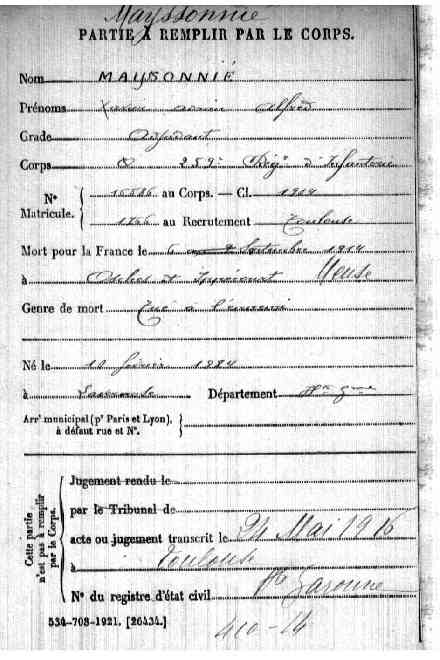 Mayssonnié
PARTIE À REMPLIR PAR LE CORPS.
Nom MAYSONNIÉ
Prénoms Alfred
Grade Adjudant
Corps 259e Régt d'Infanterie
N° Matricule. au Corps. — Cl. 1904
au Recrutement Toulouse
Mort pour la France le 6 Septembre 1914
à et Meuse
Genre de mort Tué à l'ennemi
Né le février 1884
à Département Hte Gne
Arrt municipal (pr Paris et Lyon),
à défaut rue et N°.
Cette partie n'est pas à remplir par le Corps.
Jugement rendu le
par le Tribunal de
acte ou jugement transcrit le 24 Mai 1916
à Toulouse
Hte Garonne
N° du registre d'état civil
534-708-1921. [26434.]
410-14